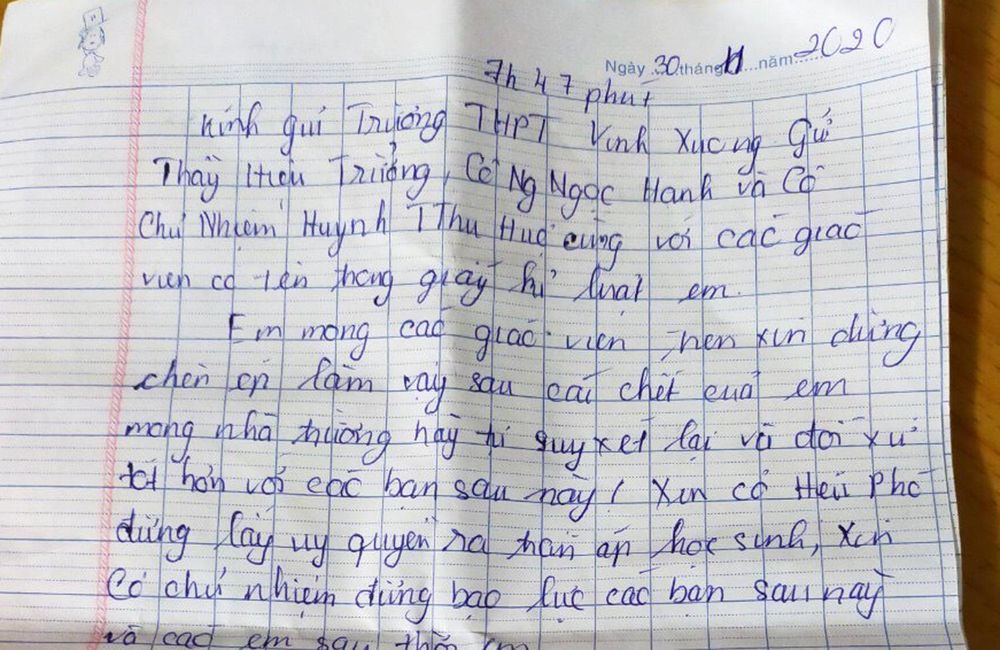 Ngày 30 tháng 11 năm 2020
7h 47 phút
Kính gửi Trường THPT Vĩnh Xương Gửi
Thầy Hiệu Trưởng, Cô Ng Ngọc Hạnh và Cô
Chủ Nhiệm Huỳnh T Thu Huệ cùng với các giáo
viên có tên trong giấy kỉ luật em.
Em mong các giáo viên trên xin đừng
chèn ép làm vậy sau cái chết của em
mong nhà trường hãy tự suy xét lại và đối xử
tốt hơn với các bạn sau này! Xin cô Hiệu Phó
đừng lấy uy quyền ra trấn áp học sinh, Xin
Cô chủ nhiệm đừng bạo lực các bạn sau này
và các em sau